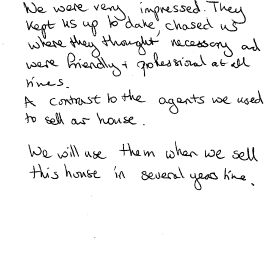 We were very impressed. They
kept us up to date, chased us
where they thought necessary and
were friendly + professional at all
times.
A contrast to the agents we used
to sell our house.
We will use them when we sell
this house in several years time.